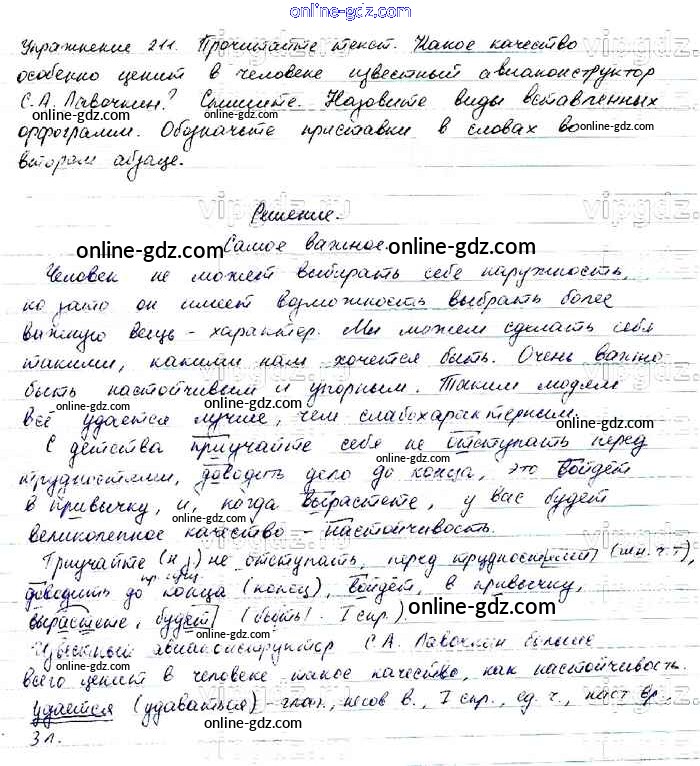 online-gdz.com
Упражнение 211. Прочитайте текст. Какое качество
особенно ценит в человеке известный авиаконструктор
С.А. Лавочкин? Спишите. Назовите виды вставленных
online-gdz.com online-gdz.com
орфограмм. Обозначьте приставки в словах во
втором абзаце.
vipgdz.ru vipgdz.ru
Решение.
Самое важное.
online-gdz.com online-gdz.com
Человек не может выбирать себе наружность,
но зато он имеет возможность выбрать более
важную вещь - характер. Мы можем сделать себя
такими, какими нам хочется быть. Очень важно
быть настойчивым и упорным. Таким людям
online-gdz.com online-gdz.com
всё удается лучше, чем слабохарактерным.
С детства приучайте себя не отступать перед
трудностями, доводить дело до конца, это войдёт
в привычку, и, когда вырастете, у вас будет
великолепное качество - настойчивость.
online-gdz.com
Приучайте (н.) не отступать, перед трудностями (мн.ч.т),
доводить до конца (конец), войдёт, в привычку,
вырастете, будет (быть). I спр.).
online-gdz.com online-gdz.com
Известный авиаконструктор С.А. Лавочкин больше
всего ценит в человеке такое качество, как настойчивость.
удается (удаваться) - глаг., несов в., I спр., ед. ч., наст вр.,
online-gdz.com online-gdz.com
3 л.